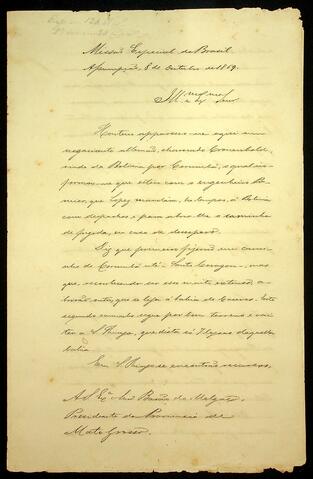 Missão Especial do Brasil
Assumpção, 8 de Outubro de 1869.
Ill.mo e Ex.mo Snr.
Hontem appareceu-me aqui um
negociante allemão, chamado
vindo da Bolivia por Corumbá, o qual in-
formou-me que esteve com o engenheiro
que Lopez mandára, ha tempos, á Bolivia
com despachos e para abrir-lhe o caminho
de fuga, em caso de desespero.
Diz que primeiro fizeram um cami-
nho de Corumbá até Santo Corazon, mas
que reconhecendo ser esse muito extenso, a-
briram outro, que se
segundo caminho segue por bom terreno e vai
ter a S. Thiago, que dista 7 legoas daquella
bahia.
Em S. Thiago se encontrão recursos,
A S. Ex.a o Snr. Barão de Melgaço,
Presidente da Provincia de
Mato Grosso.